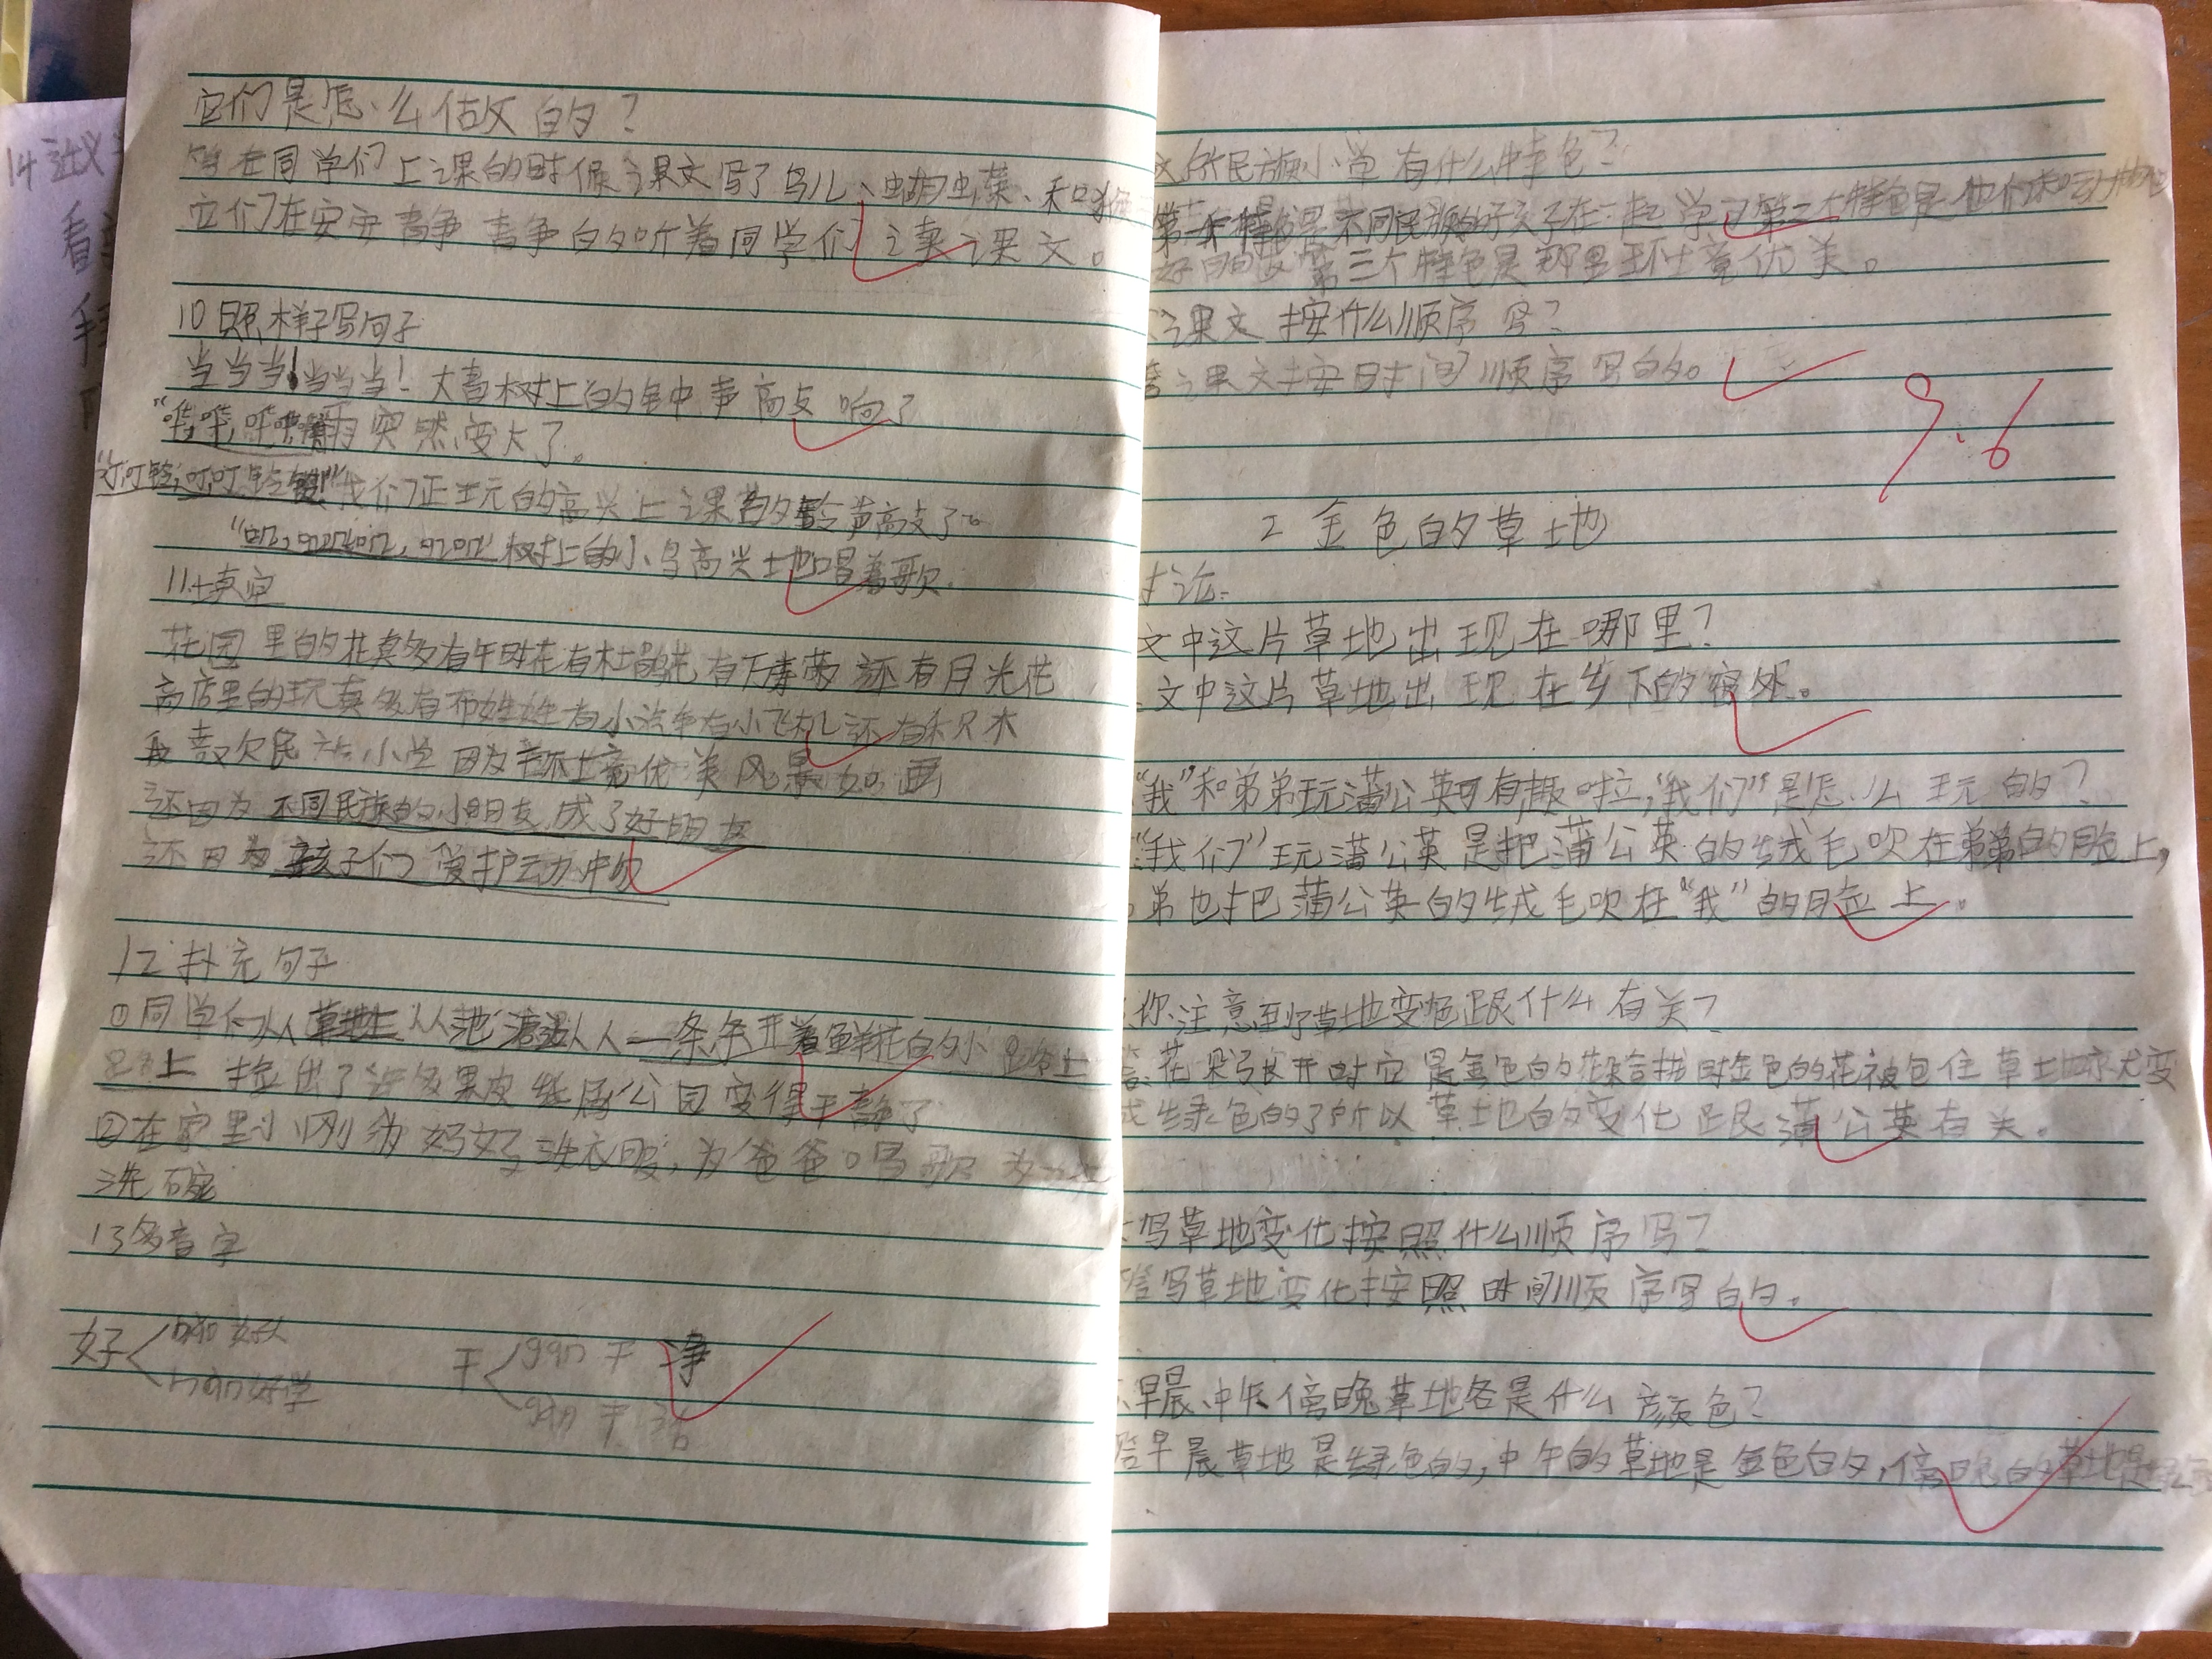 它们是怎么做的?
答在同学们上课的时候课文写了鸟儿、蝴蝶、和
它们在安安静静的听着同学们读课文。
10照样子写句子
当当当!当当当!大青树上的钟声高支响了
雨突然变大了。
“叮叮铃,叮叮铃”我们正玩的高兴上课的铃声高支了。
树上的小鸟高兴地唱着歌。
11填空
花园里的花真多有午时花有杜鹃花有万寿菊还有月光花
商店里的玩真多有布娃娃有小汽车有小飞机还有积木
我喜欢民族小学因为环境优美风景如画
还因为不同民族的小朋友成了好朋友
还因为孩子们爱护动
12扑充句子
①同学们从草地上从池塘边从一条开着鲜花的小路上
上捡出了许多果皮纸屑公园变得干静了
②在家里小刚为妈妈洗衣服,为爸爸唱歌为
洗碗
13多音字
好 hǎo 好人 干 gān 干净
hào 好学 gàn 干活
所民族小学有什么特色?
第一个特色是不同民族的好孩子在一起学习第二个特色是他们和动物
好朋友第三个特色是那里环境优美。
课文按什么顺序写?
答课文按时间顺序写的。
9.6
2 金色的草地
讨论:
文中这片草地出现在哪里?
文中这片草地出现在乡下的窗外。
“我”和弟弟玩蒲公英可有趣啦,“我们”是怎么玩的?
“我们”玩蒲公英是把蒲公英的绒毛吹在弟弟的脸上,
弟也把蒲公英的绒毛吹在“我”的脸上。
你注意到了草地变色跟什么有关?
答:花朵张开时它是金色的花朵合拢时金色的花被包住草地就变
成绿色的了所以草地的变化跟蒲公英有关。
写草地变化按照什么顺序写?
答写草地变化按照时间顺序写的。
早晨、中午傍晚草地各是什么颜色?
答早晨草地是绿色的,中午的草地是金色的,傍晚的草地是
14
看